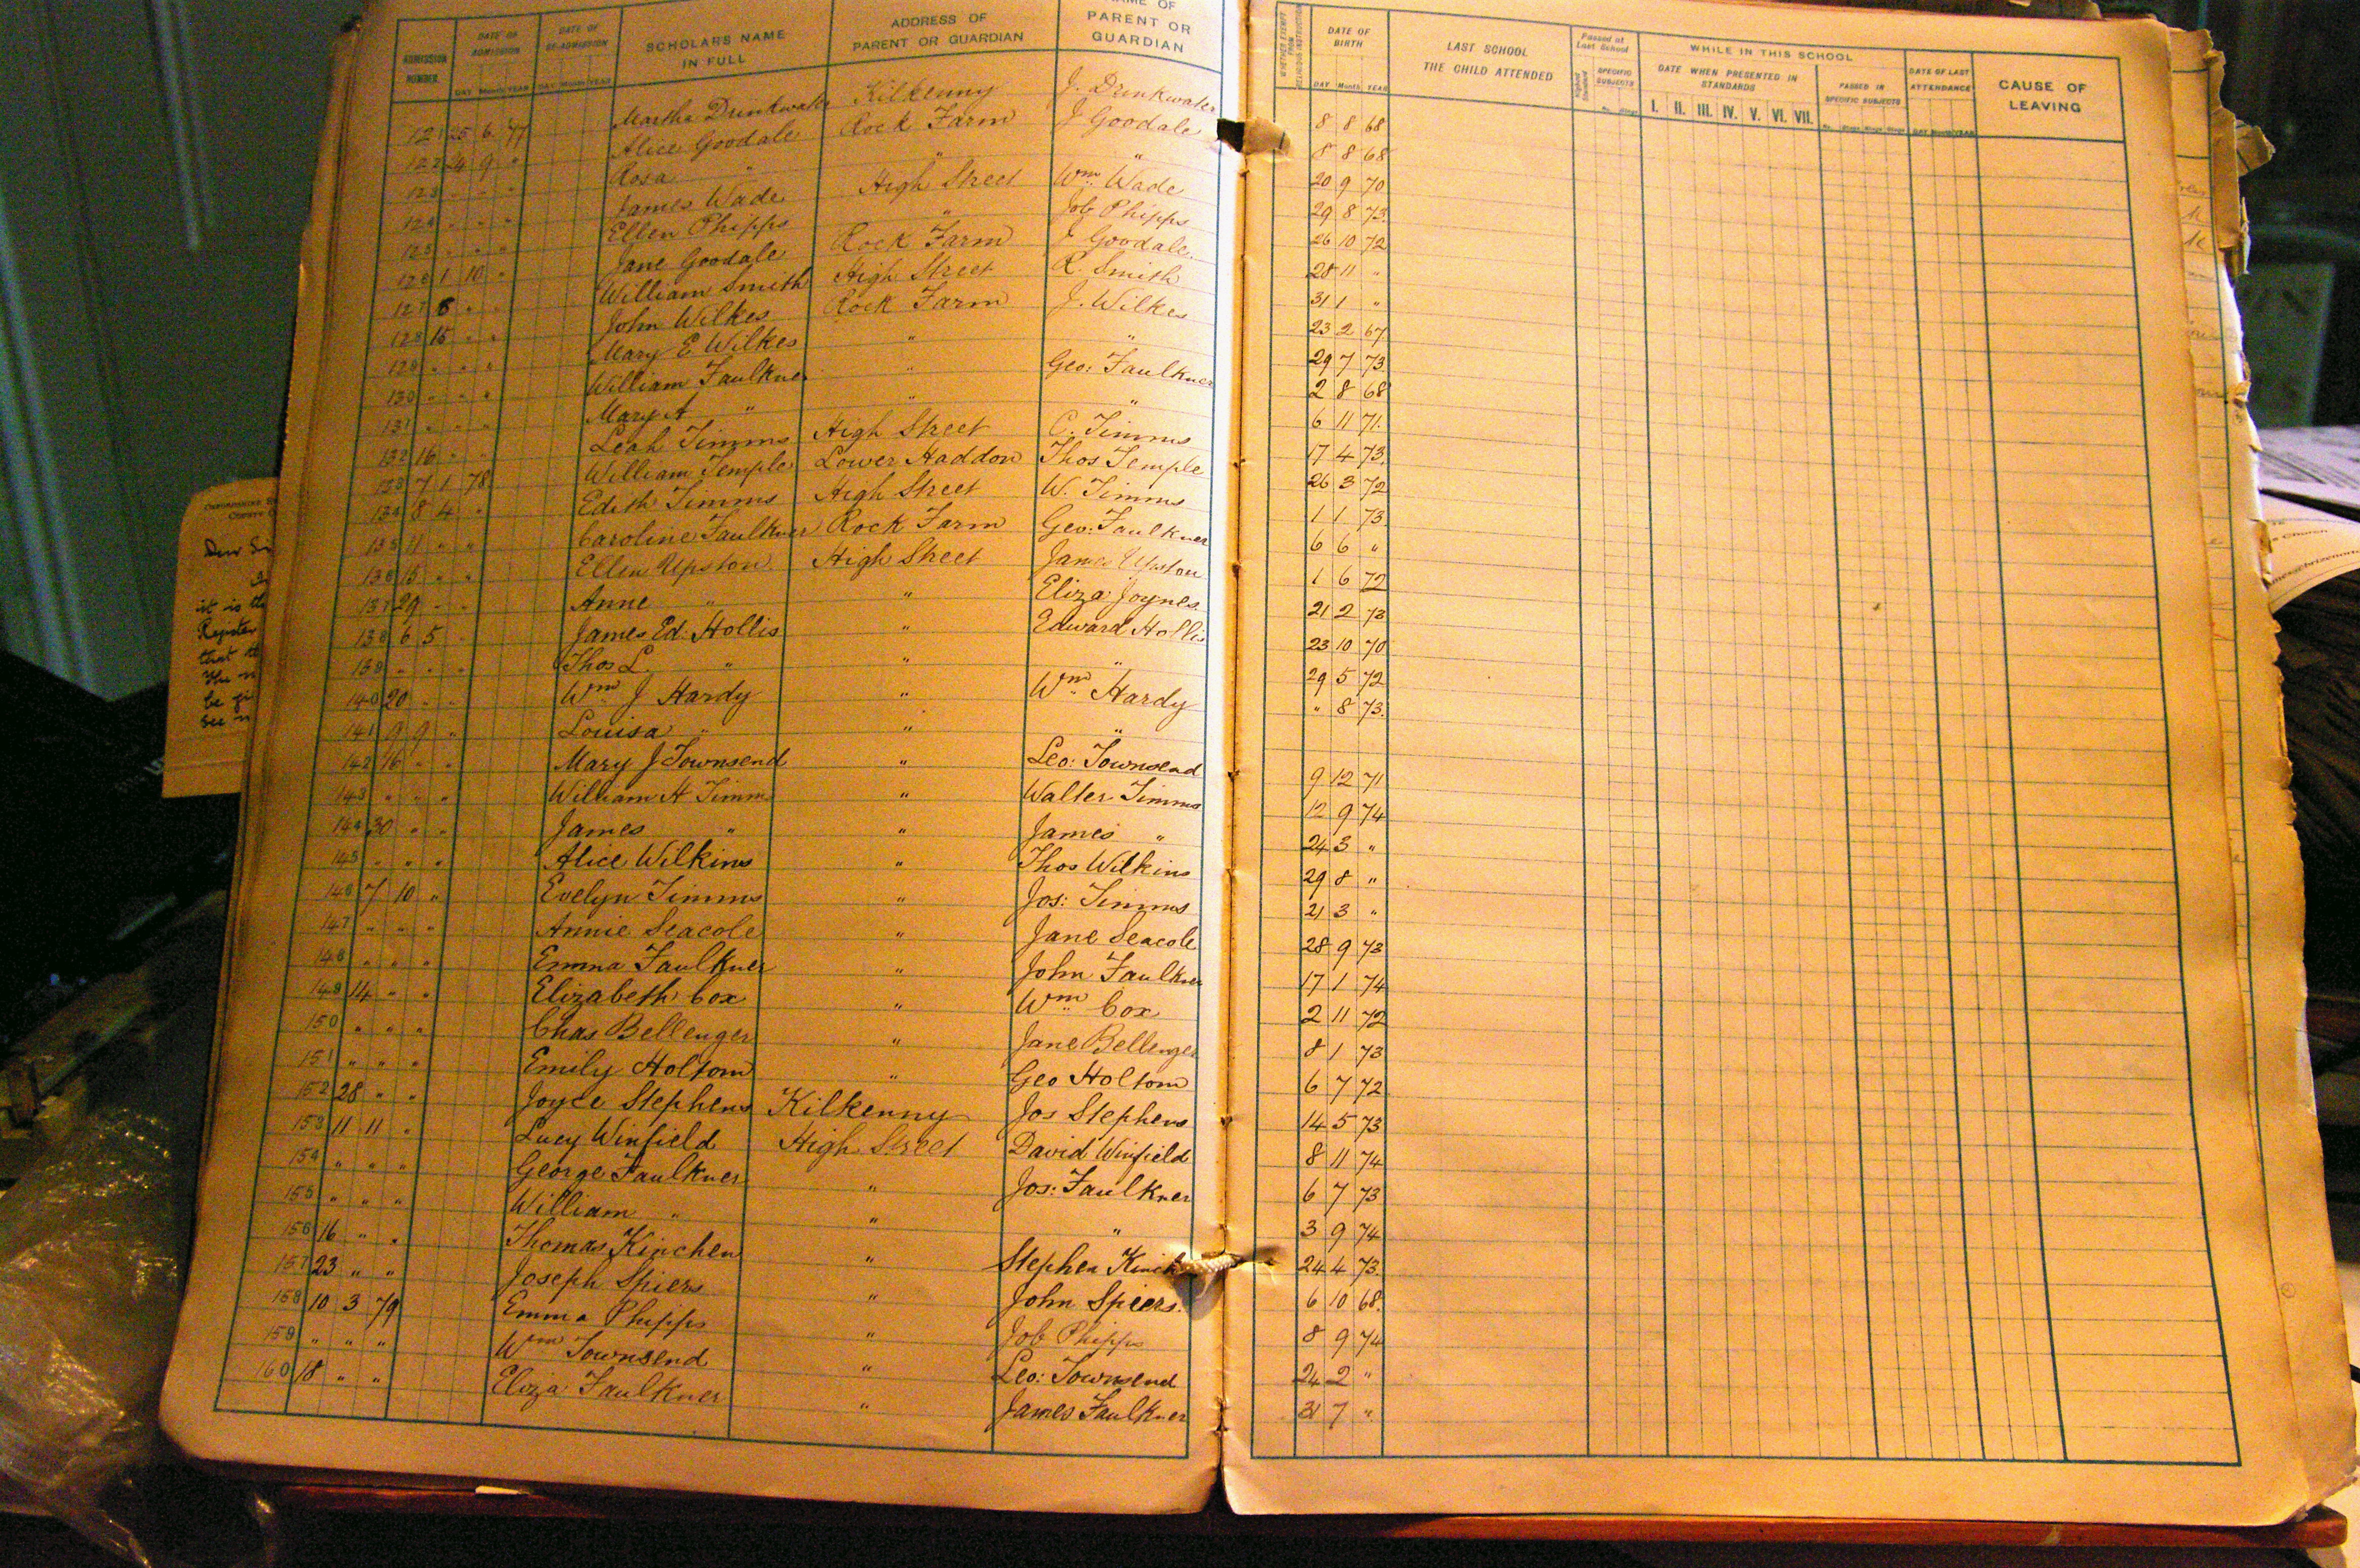 ADMISSION NUMBER.
DATE OF ADMISSION
DAY Month YEAR
DATE OF RE-ADMISSION
DAY Month YEAR
SCHOLAR'S NAME IN FULL
ADDRESS OF PARENT OR GUARDIAN
NAME OF PARENT OR GUARDIAN
121 25 6 77 Martha Drunkwater Kilkenny J. Drunkwater
122 24 9 " Alice Goodale Rock Farm J Goodale
123 " " " Rosa " " "
124 " " " James Wade High Street Wm Wade
125 " " " Ellen Phipps " Job Phipps
126 1 10 " Jane Goodale Rock Farm J Goodale.
127 8 " " William Smith High Street R. Smith
128 15 " " John Wilkes Rock Farm J. Wilkes
129 " " " Mary E Wilkes " "
130 " " " William Faulkner " Geo: Faulkner
131 " " " Mary A " " "
132 16 " " Leah Timms High Street C. Timms
133 7 1 78. William Temple Lower Haddon Thos Temple
134 8 4 " Edith Timms High Street W. Timms
135 11 " " Caroline Faulkner Rock Farm Geo: Faulkner
136 15 " " Ellen Upston High Street James Upston
137 29 " " Anne " " Eliza Joynes
138 6 5 " James Ed. Hollis " Edward Hollis
139 " " " Thos L. " " "
140 20 " " Wm J Hardy " Wm Hardy
141 9 9 " Louisa " " "
142 16 " " Mary J Townsend " Leo: Townsend
143 " " " William H Timms " Walter Timms
144 30 " " James " " James "
145 " " " Alice Wilkins " Thos Wilkins
146 7 10 " Evelyn Timms " Jos: Timms
147 " " " Annie Seacole " Jane Seacole
148 " " " Emma Faulkner " John Faulkner
149 14 " " Elizabeth Cox " Wm Cox
150 " " " Chas Bellenger " Jane Bellenger
151 " " " Emily Holtom " Geo Holtom
152 28 " " Joyce Stephens Kilkenny Jos Stephens
153 11 11 " Lucy Winfield High Street David Winfield
154 " " " George Faulkner " Jos: Faulkner
155 " " " William " " "
156 16 " " Thomas Kinchen " Stephen
157 23 " " Joseph Spiers " John Spiers.
158 10 3 79 Emma Phipps " Job Phipps
159 " " " Wm Townsend " Leo: Townsend
160 18 " " Eliza Faulkner " James Faulkner
WHETHER EXEMPT FROM RELIGIOUS INSTRUCTION
DATE OF BIRTH
DAY Month YEAR
LAST SCHOOL THE CHILD ATTENDED
Passed at Last School
Highest Standard
SPECIFIC SUBJECTS
WHILE IN THIS SCHOOL
DATE WHEN PRESENTED IN STANDARDS
I. II. III. IV. V. VI. VII.
PASSED IN SPECIFIC SUBJECTS
DATE OF LAST ATTENDANCE
DAY Month YEAR
CAUSE OF LEAVING
8 8 68
8 8 68
20 9 70
29 8 73.
26 10 72
28 11 "
31 1 "
23 2 67
29 7 73.
2 8 68
6 11 71.
17 4 73.
26 3 72
1 1 73.
6 6 "
1 6 72
21 2 73
23 10 70
29 5 72
" 8 73.
9 12 71
12 9 74
24 3 "
29 8 "
21 3 "
28 9 73
17 1 74
2 11 72
8 1 73
6 7 72
14 5 73
8 11 74
6 7 73
3 9 74
24 4 73.
6 10 68.
8 9 74
24 2 "
31 7 "
it is th
Register
that th
be gi
see